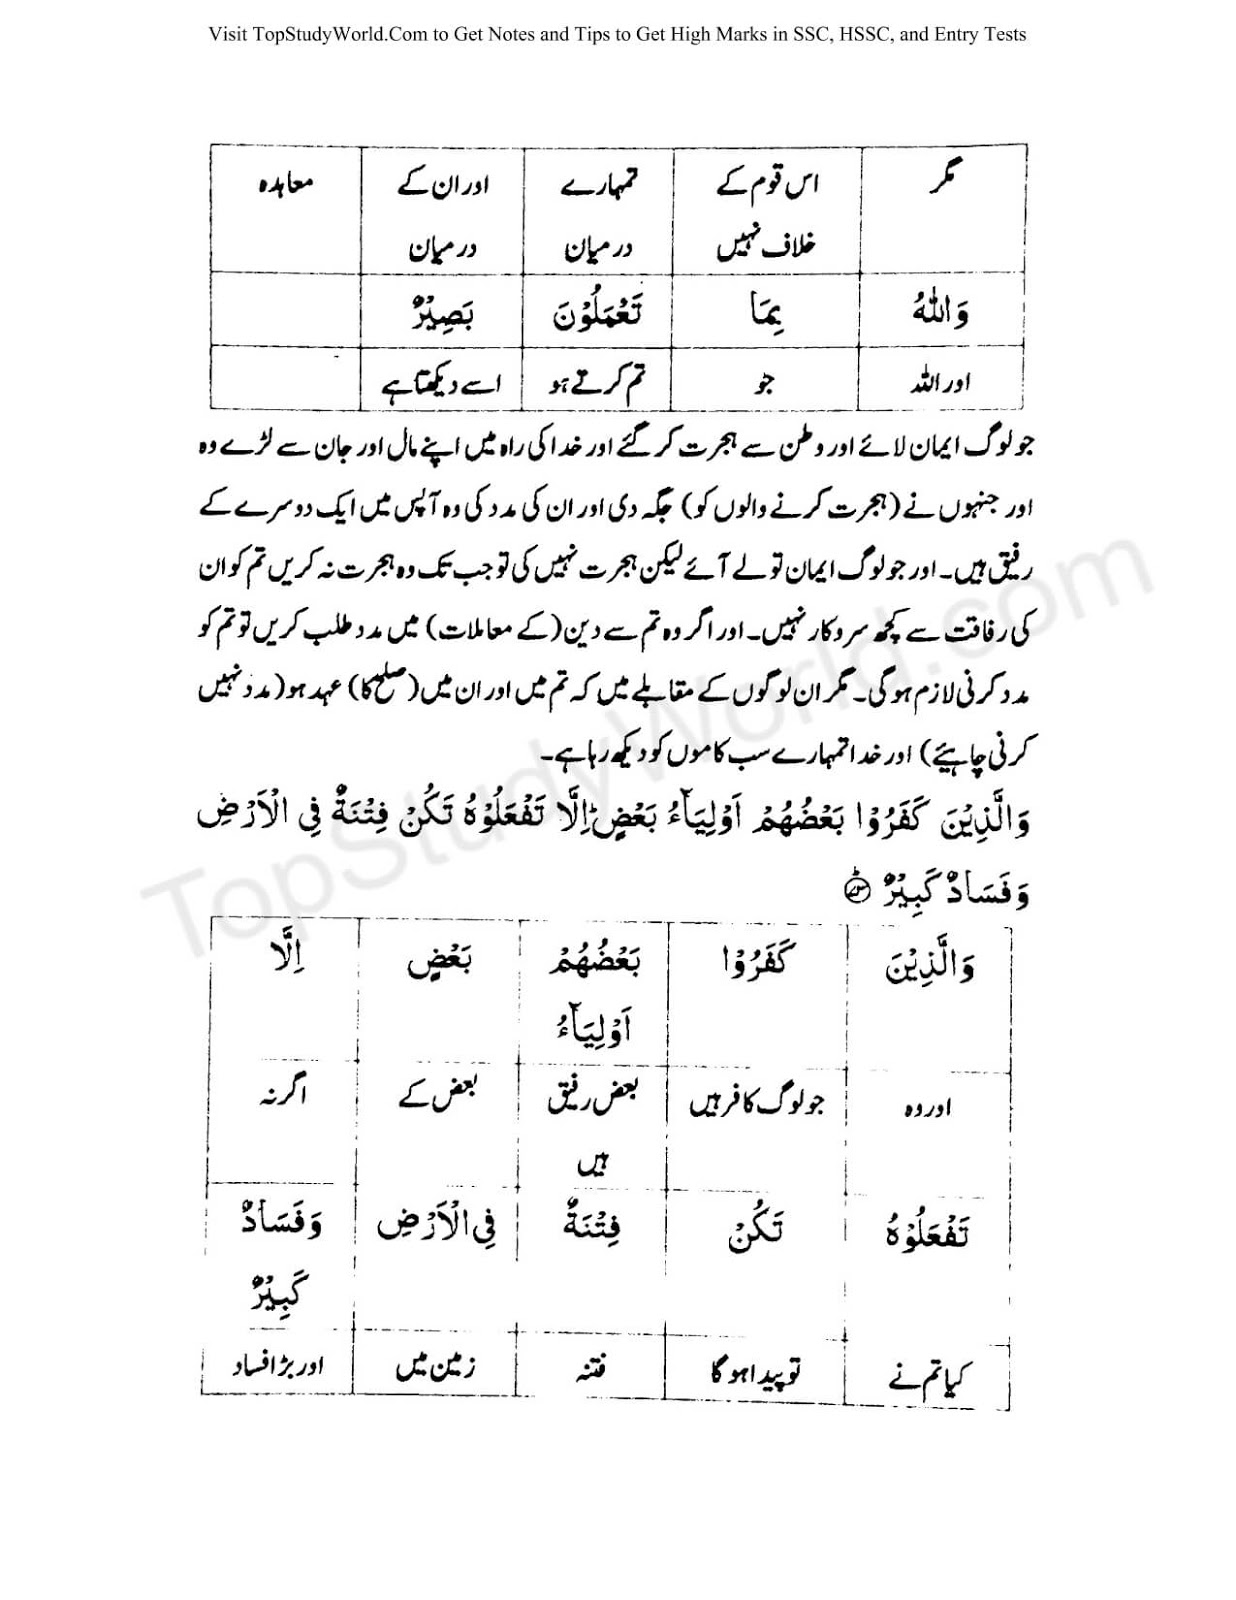 Visit TopStudyWorld.Com to Get Notes and Tips to Get High Marks in SSC, HSSC, and Entry Tests
مگر اس قوم کے تمہارے اور ان کے معاہدہ
خلاف نہیں درمیان درمیان
وَاللّٰهُ بِمَا تَعْمَلُوْنَ بَصِيْرٌ
اور اللہ جو تم کرتے ہو اسے دیکھتا ہے
جو لوگ ایمان لائے اور وطن سے ہجرت کر گئے اور خدا کی راہ میں اپنے مال اور جان سے لڑے وہ
اور جنہوں نے (ہجرت کرنے والوں کو) جگہ دی اور ان کی مدد کی وہ آپس میں ایک دوسرے کے
رفیق ہیں۔ اور جو لوگ ایمان تو لے آئے لیکن ہجرت نہیں کی تو جب تک وہ ہجرت نہ کریں تم کو ان
کی رفاقت سے کچھ سروکار نہیں۔ اور اگر وہ تم سے دین (کے معاملات) میں مدد طلب کریں تو تم کو
مدد کرنی لازم ہو گی۔ مگر ان لوگوں کے مقابلے میں کہ تم میں اور ان میں (صلح کا) عہد ہو (مدد نہیں
کرنی چاہیئے) اور خدا تمہارے سب کاموں کو دیکھ رہا ہے۔
وَالَّذِيْنَ كَفَرُوْا بَعْضُهُمْ اَوْلِيَآءُ بَعْضٍ ؕ اِلَّا تَفْعَلُوْهُ تَكُنْ فِتْنَةٌ فِى الْاَرْضِ
وَفَسَادٌ كَبِيْرٌ
وَالَّذِيْنَ كَفَرُوْا بَعْضُهُمْ بَعْضٍ اِلَّا
اَوْلِيَآءُ
اور وہ جو لوگ کافر ہیں بعض رفیق بعض کے اگر نہ
ہیں
تَفْعَلُوْهُ تَكُنْ فِتْنَةٌ فِى الْاَرْضِ وَفَسَادٌ
كَبِيْرٌ
کیا تم نے تو پیدا ہو گا فتنہ زمین میں اور بڑا فساد
TopStudyWorld.com